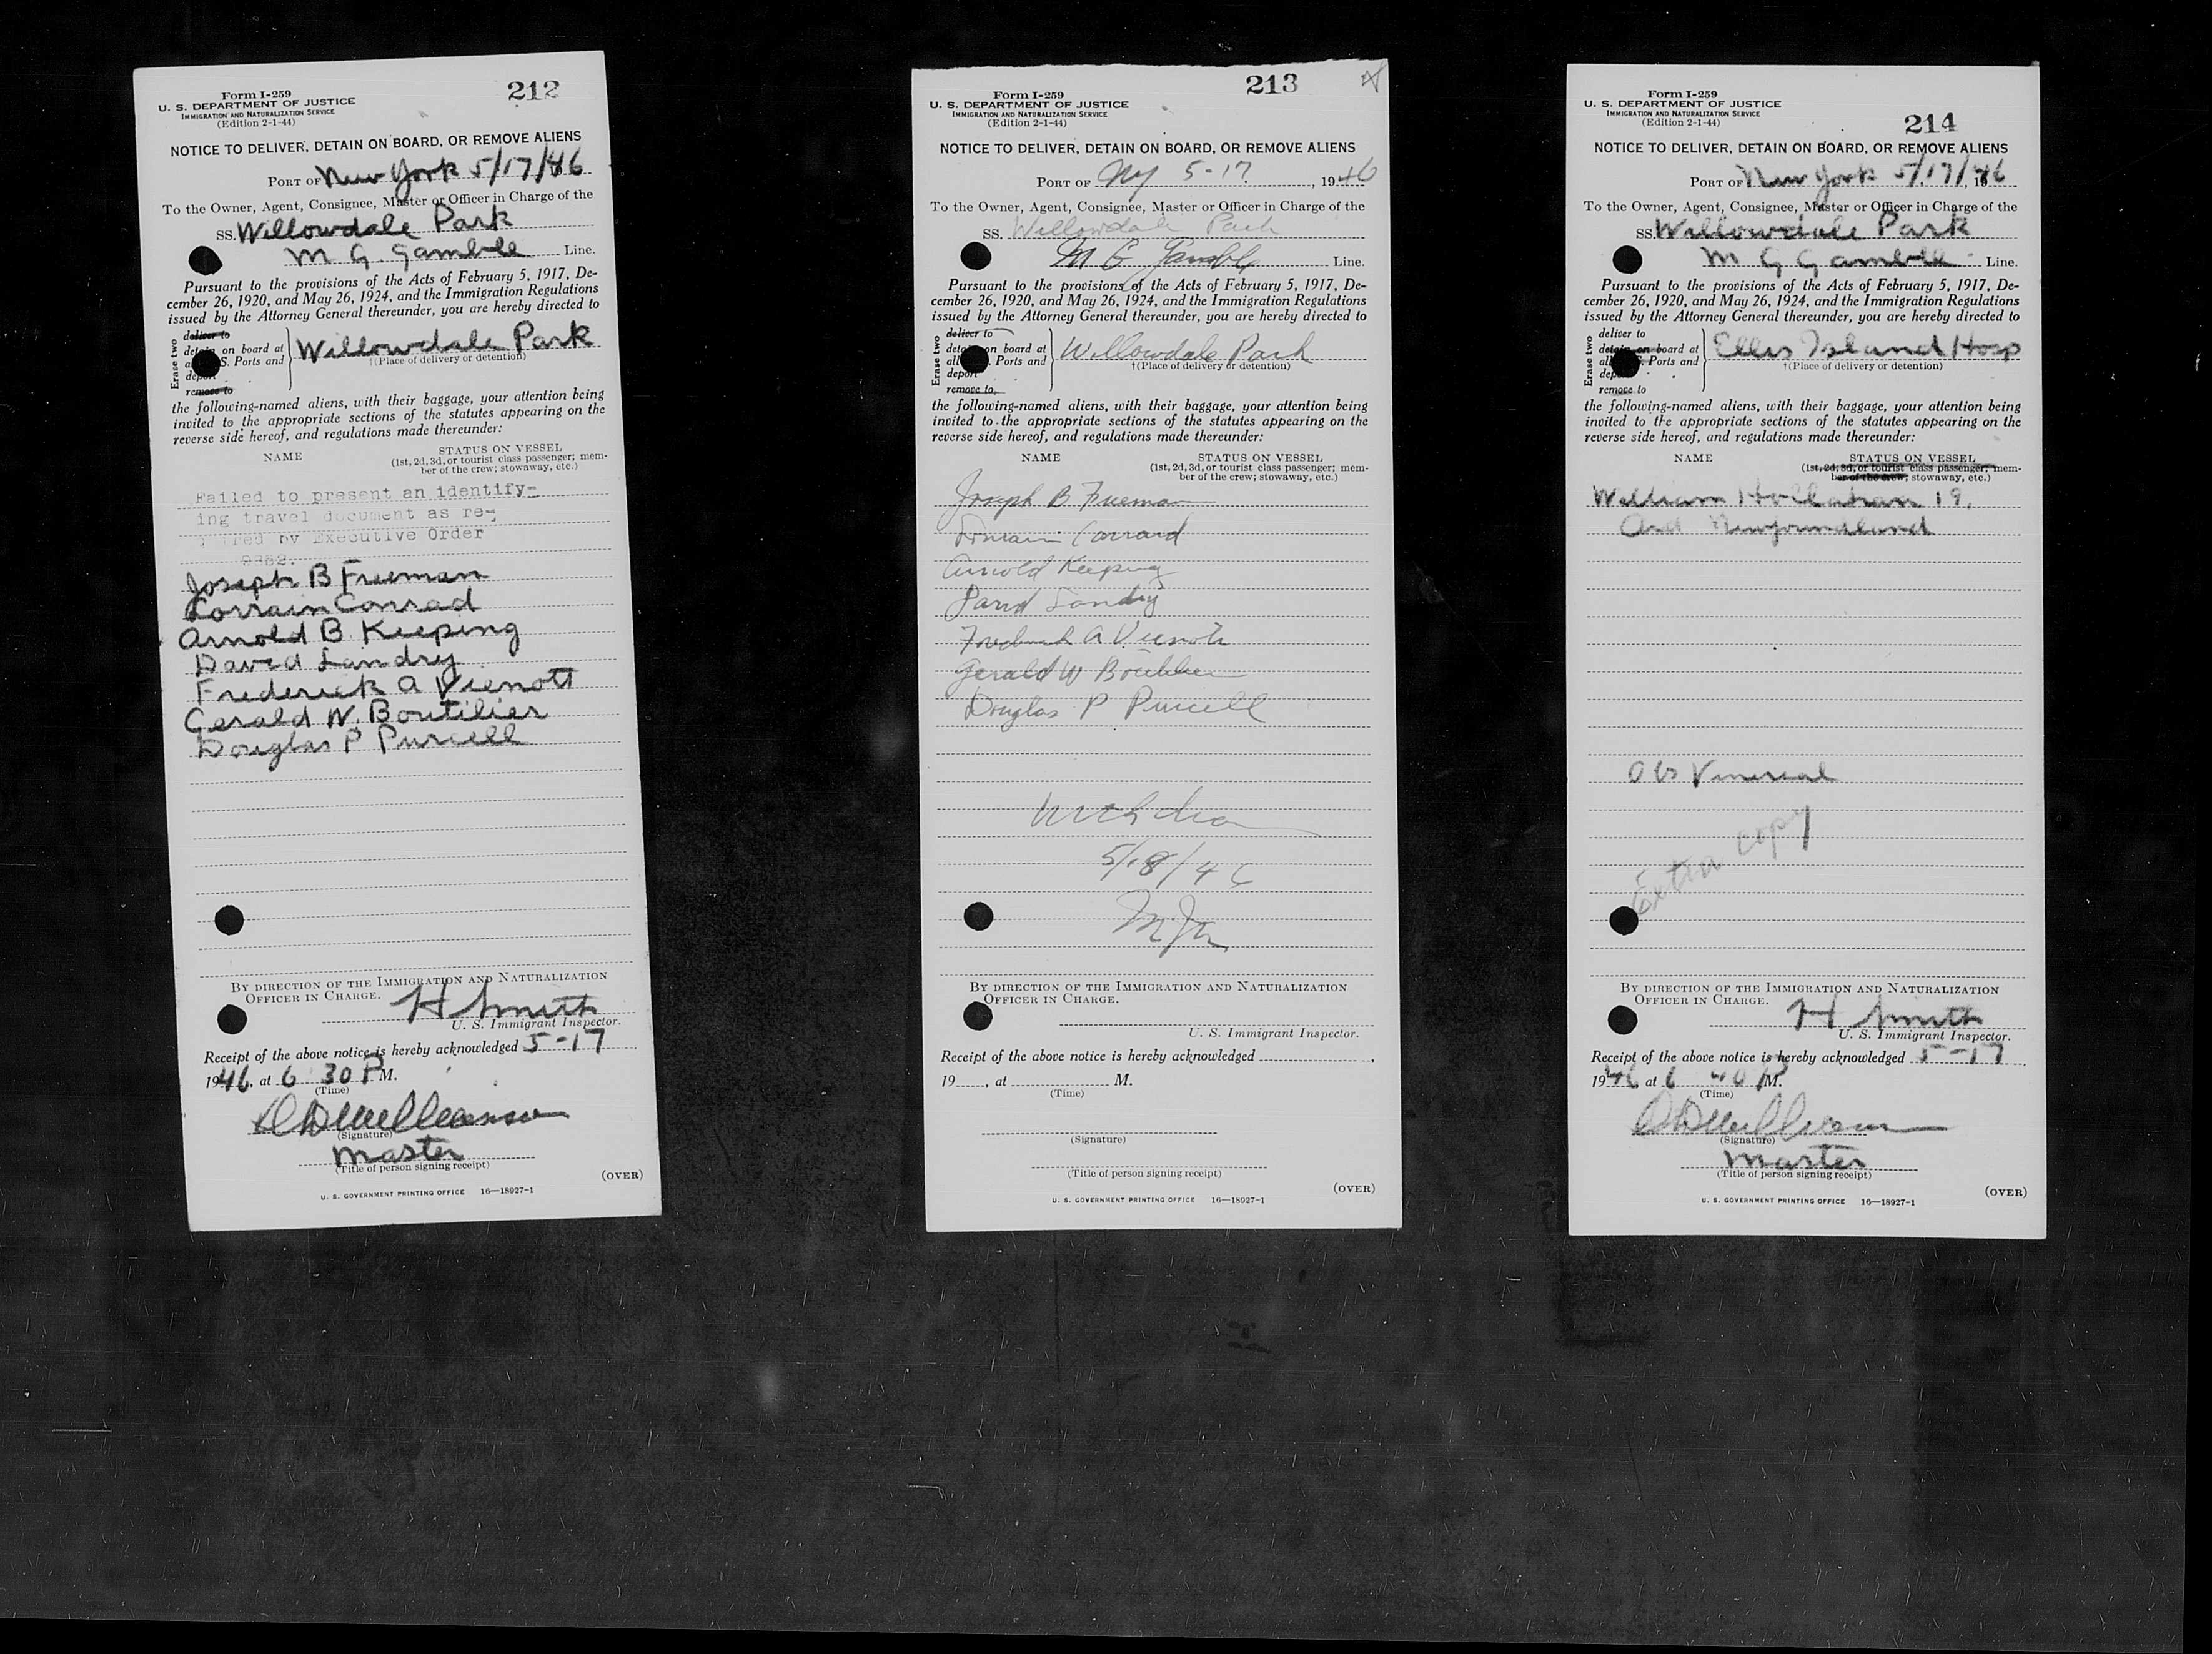 Form I-259
212
U. S. DEPARTMENT OF JUSTICE
IMMIGRATION AND NATURALIZATION SERVICE
(Edition 2-1-44)
NOTICE TO DELIVER, DETAIN ON BOARD, OR REMOVE ALIENS
PORT OF New York 5/17/46
To the Owner, Agent, Consignee, Master or Officer in Charge of the
SS. Willowdale Park
M G. Gamble Line.
Pursuant to the provisions of the Acts of February 5, 1917, De-
cember 26, 1920, and May 26, 1924, and the Immigration Regulations
issued by the Attorney General thereunder, you are hereby directed to
Erase two
deliver to
detain on board at
S. Ports and
Willowdale Park
†(Place of delivery or detention)
remove to
the following-named aliens, with their baggage, your attention being
invited to the appropriate sections of the statutes appearing on the
reverse side hereof, and regulations made thereunder:
NAME
STATUS ON VESSEL
(1st, 2d, 3d, or tourist class passenger; mem-
ber of the crew; stowaway, etc.)
Failed to present an identify-
ing travel document as re-
quired by Executive Order
9352.
Joseph B Freeman
Lorrain Conrad
Arnold B. Keeping
David Landry
Frederick A Vienott
Gerald W. Boutilier
Douglas P Purcell
BY DIRECTION OF THE IMMIGRATION AND NATURALIZATION
OFFICER IN CHARGE.
H Smith
U. S. Immigrant Inspector.
Receipt of the above notice is hereby acknowledged 5-17
1946, at 6 30 P M.
(Time)
(Signature)
Master
(Title of person signing receipt)
(OVER)
U. S. GOVERNMENT PRINTING OFFICE 16—18927-1
Form I-259
213
U. S. DEPARTMENT OF JUSTICE
IMMIGRATION AND NATURALIZATION SERVICE
(Edition 2-1-44)
NOTICE TO DELIVER, DETAIN ON BOARD, OR REMOVE ALIENS
PORT OF NY 5-17, 1946
To the Owner, Agent, Consignee, Master or Officer in Charge of the
SS. Willowdale Park
M G Gamble Line.
Pursuant to the provisions of the Acts of February 5, 1917, De-
cember 26, 1920, and May 26, 1924, and the Immigration Regulations
issued by the Attorney General thereunder, you are hereby directed to
Erase two
deliver to
on board at
Ports and
deport
Willowdale Park
†(Place of delivery or detention)
remove to
the following-named aliens, with their baggage, your attention being
invited to the appropriate sections of the statutes appearing on the
reverse side hereof, and regulations made thereunder:
NAME
STATUS ON VESSEL
(1st, 2d, 3d, or tourist class passenger; mem-
ber of the crew; stowaway, etc.)
Joseph B Freeman
Conrad
Arnold Keeping
David Landry
Frederick A Vienott
Gerald W Boutilier
Douglas P Purcell
5/18/46
BY DIRECTION OF THE IMMIGRATION AND NATURALIZATION
OFFICER IN CHARGE.
U. S. Immigrant Inspector.
Receipt of the above notice is hereby acknowledged
19, at M.
(Time)
(Signature)
(Title of person signing receipt)
(OVER)
U. S. GOVERNMENT PRINTING OFFICE 16—18927-1
Form I-259
U. S. DEPARTMENT OF JUSTICE
IMMIGRATION AND NATURALIZATION SERVICE
(Edition 2-1-44)
214
NOTICE TO DELIVER, DETAIN ON BOARD, OR REMOVE ALIENS
PORT OF New York 5/17/46
To the Owner, Agent, Consignee, Master or Officer in Charge of the
SS. Willowdale Park
M G Gamble Line.
Pursuant to the provisions of the Acts of February 5, 1917, De-
cember 26, 1920, and May 26, 1924, and the Immigration Regulations
issued by the Attorney General thereunder, you are hereby directed to
Erase two
deliver to
detain on board at
S. Ports and
Ellis Island Hosp
†(Place of delivery or detention)
remove to
the following-named aliens, with their baggage, your attention being
invited to the appropriate sections of the statutes appearing on the
reverse side hereof, and regulations made thereunder:
NAME
STATUS ON VESSEL
(1st, 2d, 3d, or tourist class passenger; mem-
ber of the crew; stowaway, etc.)
William 19.
Newfoundland
Obs Venereal
Extra Copy
BY DIRECTION OF THE IMMIGRATION AND NATURALIZATION
OFFICER IN CHARGE.
H Smith
U. S. Immigrant Inspector.
Receipt of the above notice is hereby acknowledged 5-17
1946 at 6 40 P M.
(Time)
(Signature)
Master
(Title of person signing receipt)
(OVER)
U. S. GOVERNMENT PRINTING OFFICE 16—18927-1